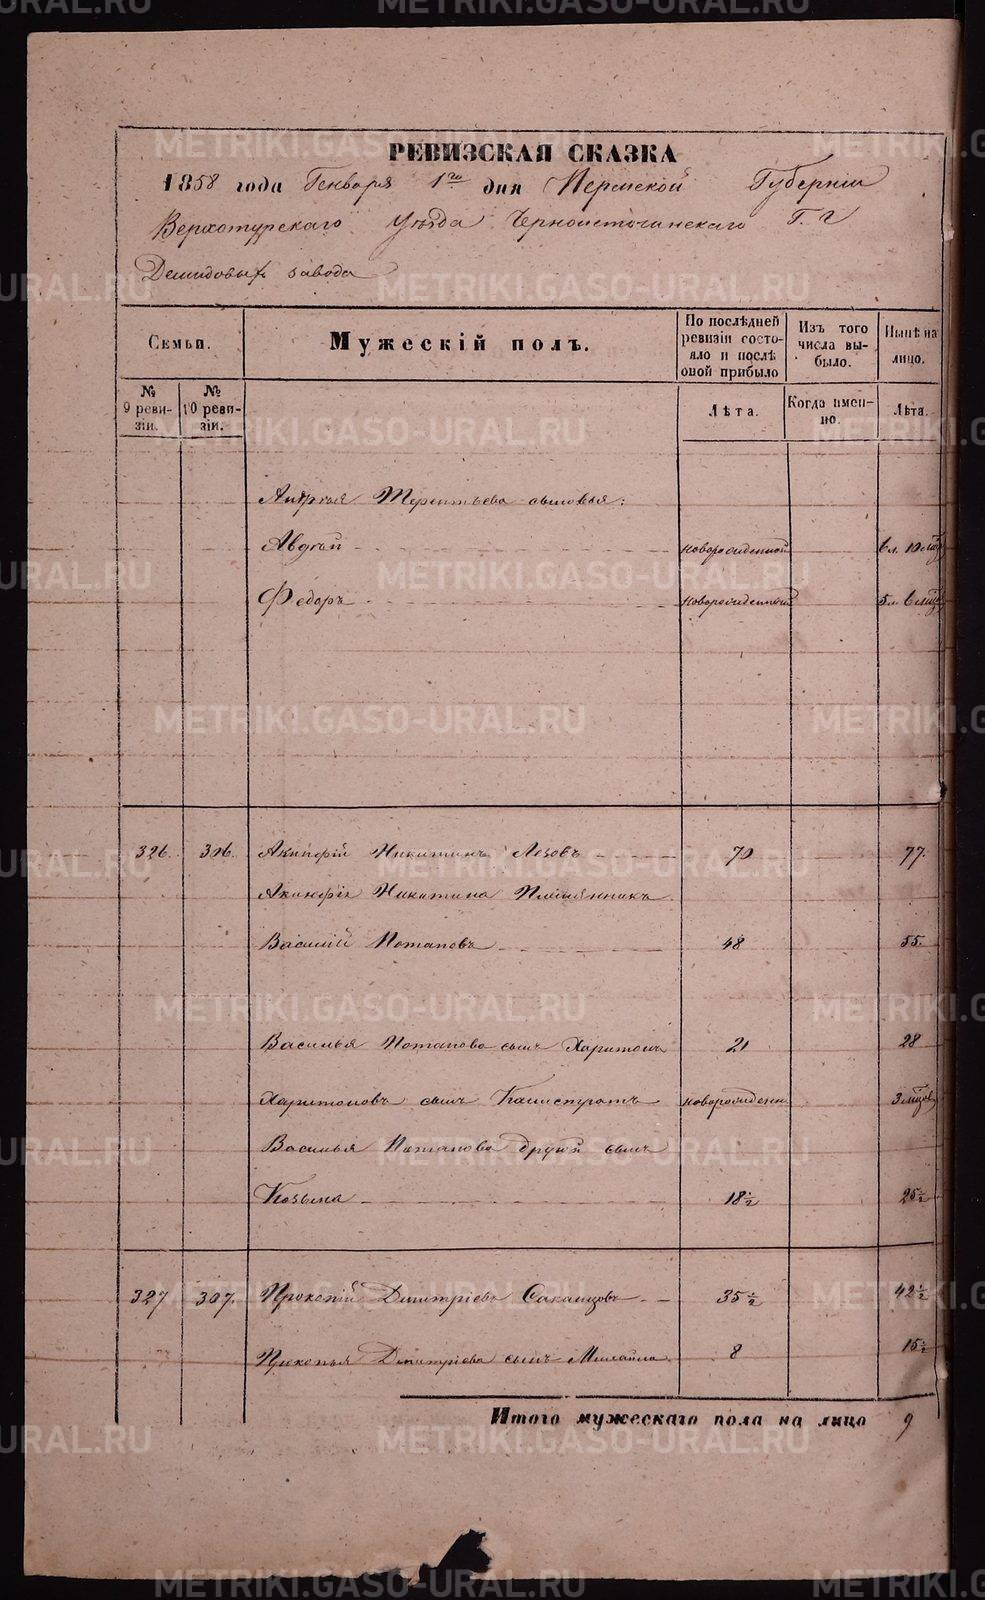 РЕВИЗСКАЯ СКАЗКА
1858 года Генваря 1го дня Пермской Губерніи
Верхотурскаго Уѣзда Черноисточинскаго Г. г
Демидовыхъ завода
Семьи.
№ 9 ревизіи.
№ 10 ревизіи.
Мужескій полъ.
По послѣдней ревизіи состояло и послѣ оной прибыло
Лѣта.
Изъ того числа выбыло.
Когда именно.
Нынѣ на лицо.
Лѣта.
Терентьева сыновья:
Авдѣй новорожденной 6 л. 10
Федоръ новорожденной 5 л. 6
326. 306. Акинфій Никитинъ 70 77.
Акинфія Никитина Племянникъ
Василій Потаповъ 48 55.
Василья Потапова сынъ Харитонъ 21 28
Харитоновъ сынъ Калистратъ новорожден 3
Василья Потапова другой сынъ
Козьма 18½ 25½
327 307. Прокопій Дмитріевъ 35½ 42½
Прокопья Дмитріева сынъ Михайла 8 15½
Итого мужескаго пола на лицо 9
METRIKI.GASO-URAL.RU